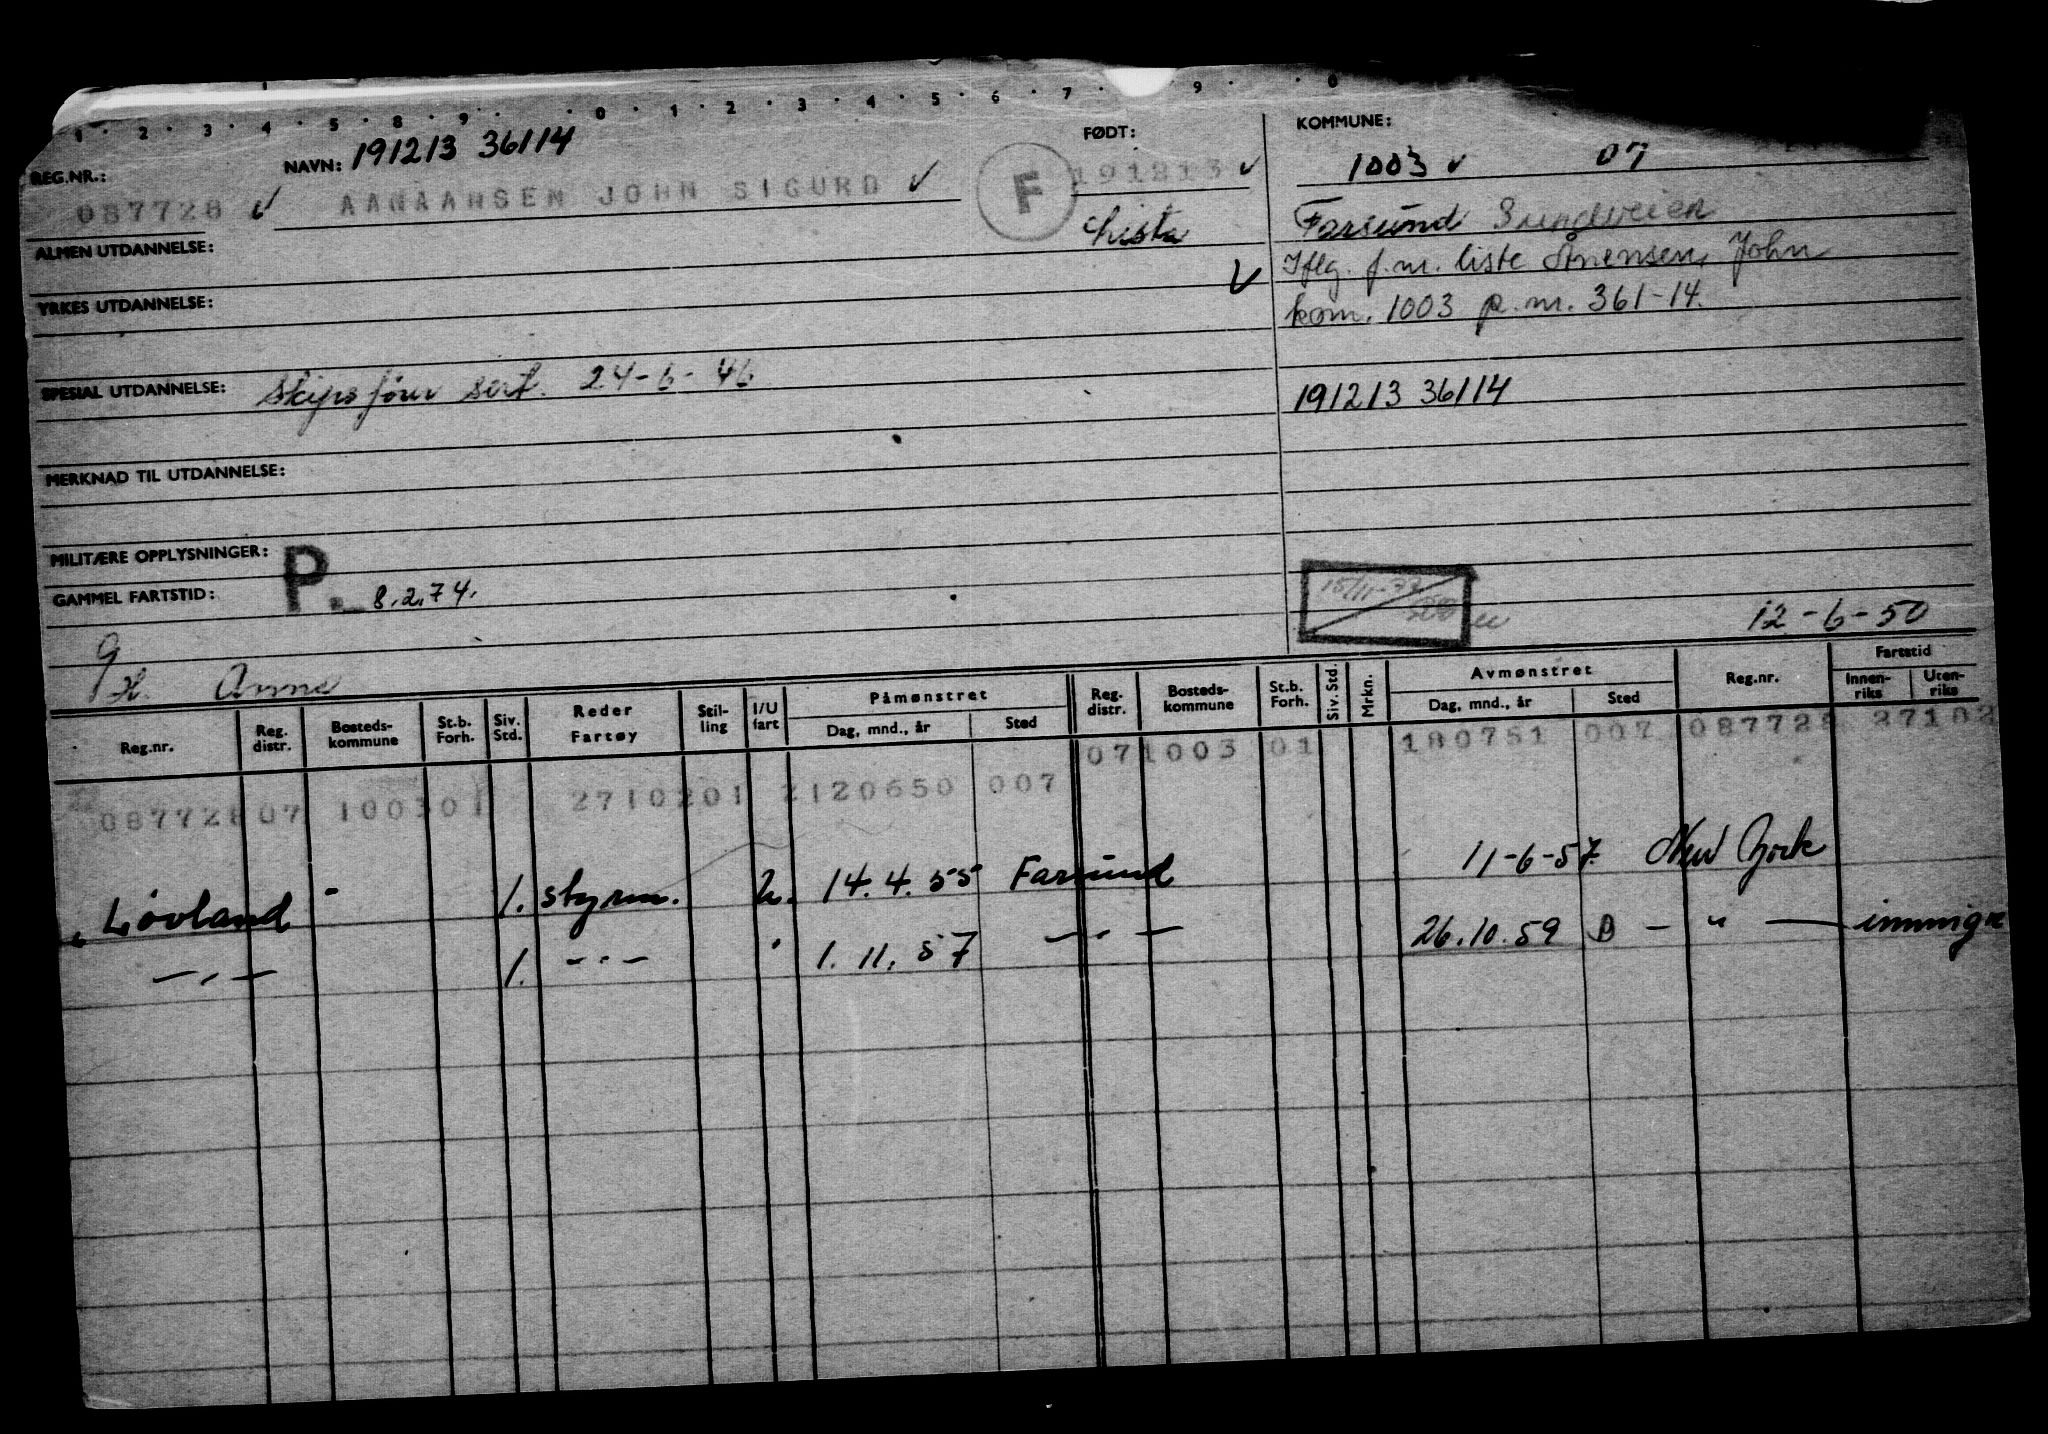 1 · 2 · 3 · 4 · 5 · 8 · 9 · 0 · 1 · 2 · 3 · 4 · 5 · 6 · 7 · 9 · 0
REG.NR.: NAVN: 191213 36114 FØDT: KOMMUNE:
087728 ✓ AANAANSEN JOHN SIGURD ✓ F 191213 ✓ 1003 ✓ 07
Lista Farsund Sundveien
ALMEN UTDANNELSE:
Iflg. f.nr. liste Ånensen, John
YRKES UTDANNELSE:
kom. 1003 p.nr. 361-14.
SPESIAL UTDANNELSE: Skipsfører sert. 24-6-46
191213 36114
MERKNAD TIL UTDANNELSE:
MILITÆRE OPPLYSNINGER:
GAMMEL FARTSTID: P. 8.2.74.
12-6-50
g
H. Anna
Reg.nr. Reg. distr. Bosteds-kommune St.b. Forh. Siv. Std. Reder Fartøy Stil-ling I/U fart Påmønstret Dag, mnd., år Sted Reg. distr. Bosteds-kommune St.b. Forh. Siv. Std. Mrkn. Avmønstret Dag, mnd., år Sted Reg.nr. Fartstid Innen-riks Uten-riks
087728 07 1003 01 2710201 2120650 007 07 1003 01 180751 007 087728 27102
" Lövland - 1. styrm. u. 14.4.55 Farsund 11-6-57. New York
— " — 1. — " — " 1.11.57 — " — 26.10.59 B — " —